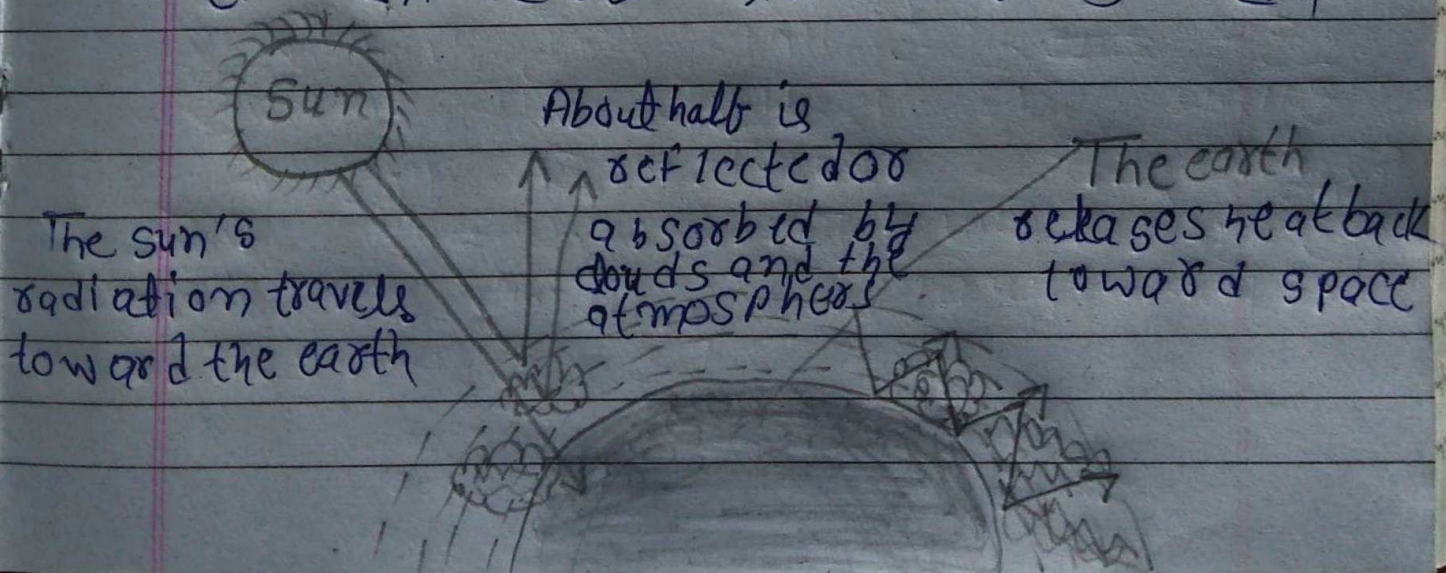 Sun
The sun's
radiation travels
toward the earth
About half is
reflected or
absorbed by
clouds and the
atmosphere
The earth
releases heat back
toward space